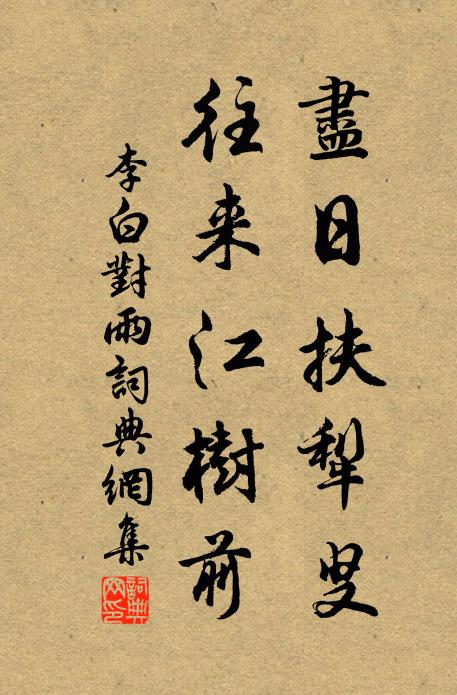 盡日扶犁叟
往来江樹前
李白對雨詞典網集
詞典網印